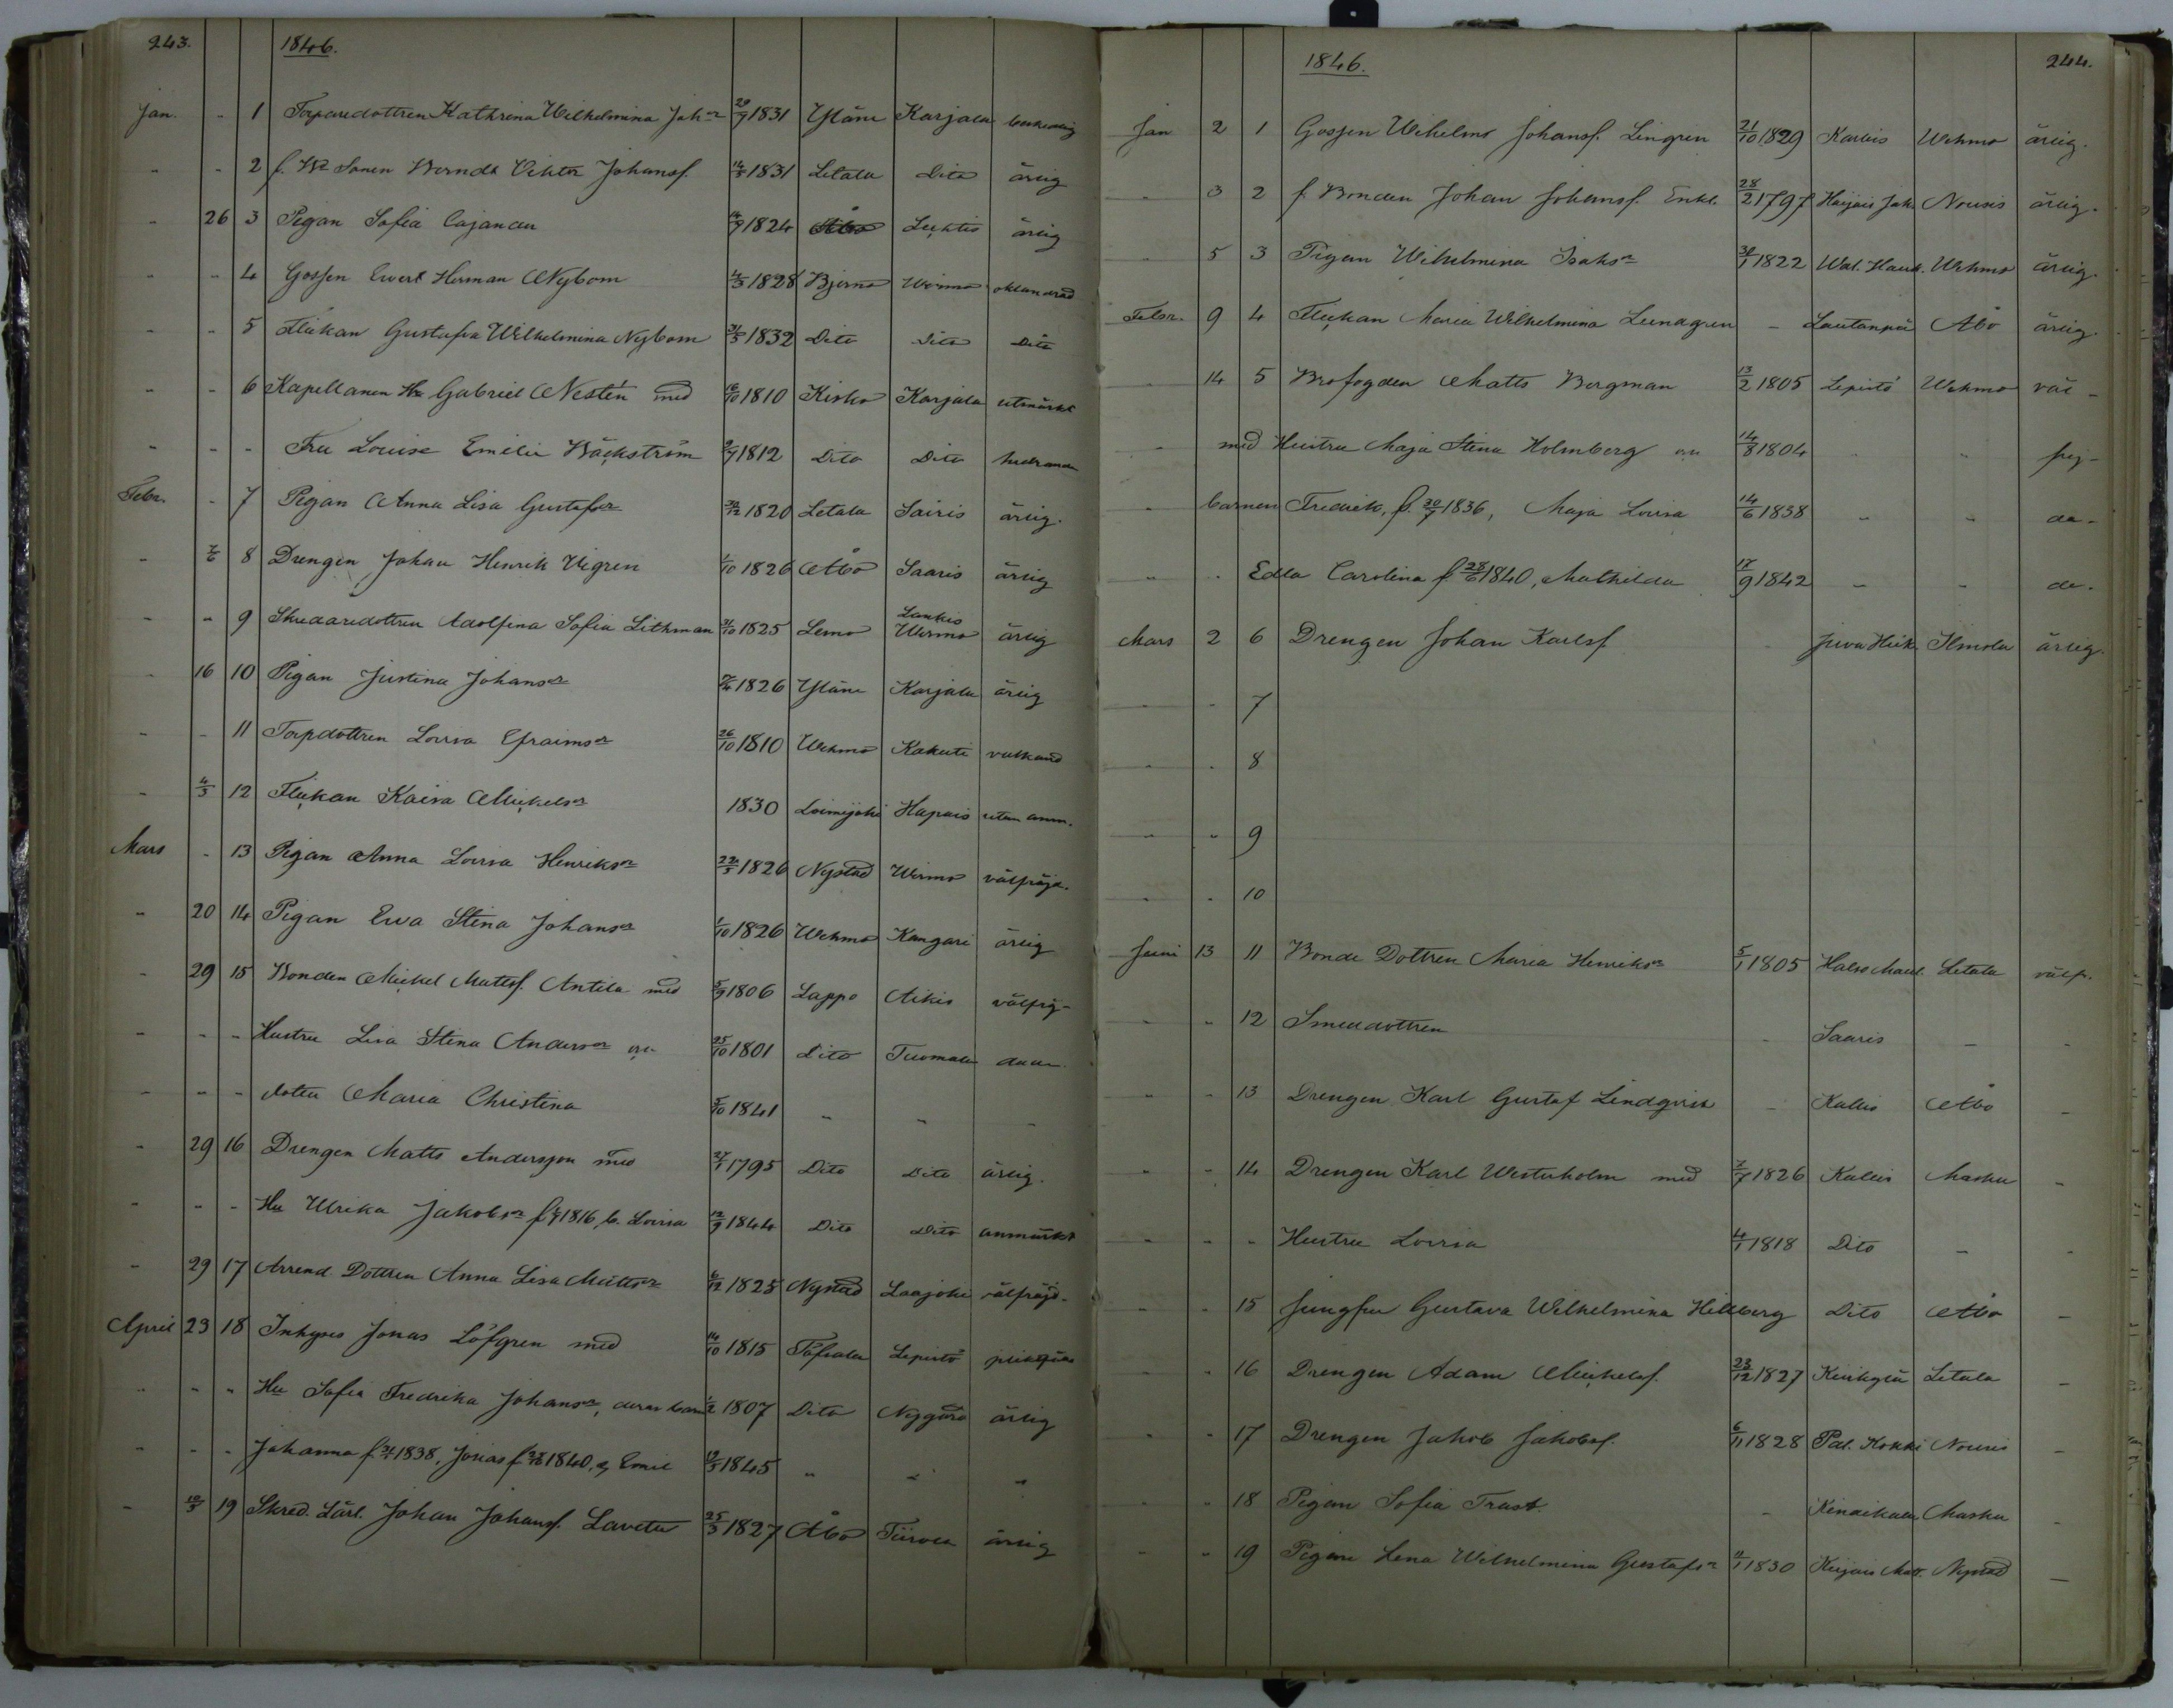 243.
1846.
Jan. - 1 Torparedottren Kathrina Wilhelmina Joh:r 29/9 1831 Yläne Karjala beskedlig
- - 2 f. Sonen Berndt Viktor Johansf. 14/3 1831 Letala Dito ärlig
- 26 3 Pigan Sofia Cajander 14/9 1824 Åbo Lechtis ärlig
- - 4 Gossen Evert Herman Nybom 4/3 1828 Bjerno Wirmo oklandrad
- - 5 Flickan Gustafva Wilhelmina Nybom 31/5 1832 Dito Dito Dito
- - 6 Kapellanen Hr Gabriel Nestén med 16/10 1810 Kisko Karjala utmärkt
- - - Fru Louise Emelie Bäckström 1812 Dito Dito hedrande
Febr. - 7 Pigan Anna Lisa Gustafsr 1820 Letala Sairis ärlig.
- 7/6 8 Drengen Johan Henrik Vigren 1/10 1826 Åbo Saaris ärlig
- - 9 Skredaredottren Adolfina Sofia Lithman 31/10 1825 Lemo Lankis Wirmo ärlig
- 16 10 Pigan Justina Johansr 1826 Yläne Karjala ärlig
- - 11 Torpdottren Lovisa Efraimsr 26/10 1810 Wehmo Kakuti
- 4/3 12 Flickan Kaisa Mickelsr 1830 Loimijoki Hapais utan anm.
Mars - 13 Pigan Anna Lovisa Henriksr 22/5 1826 Nystad Wirmo välfräjd.
- 20 14 Pigan Ewa Stina Johansr 1/10 1826 Wehmo Kangari ärlig
- 29 15 Bonden Mickel Mattsf. Antila med 5/9 1806 Lappo Aikis välfräj-
- - - Hustru Lisa Stina Andersr 25/10 1801 Dito Tuomala
- - - dotter Maria Christina 5/10 1841 - - -
- 29 16 Drengen Matts Andersson med 27/1 1795 Dito Dito ärlig.
- - - Hu Ulrika Jakobsr f. 1816, b. Lovisa 12/9 1844 Dito Dito anmärkt
- 29 17 Arrend. Dottren Anna Lisa Mattsr 6/12 1825 Nystad Laajoki välfräjd.
April 23 18 Inhyses Jonas Löfgren med 14/10 1815 Töfsala Lepistö
- - - Hu Sofia Fredrika Johansr, deras barn 1/2 1807 Dito Nygård ärlig
- - - Johanna f. 1838, Josias f. 1840, Emil 1845 - - -
- 10/5 19 Skred. Lärl. Johan Johansf. Laveten 25/3 1827 Åbo Tiirola ärlig
1846.
244.
Jan 2 1 Gossen Wilhelm Johansf. Lingren 21/10 1829 Karlis Wehmo ärlig.
- 3 2 f. Bonden Johan Johansf. Enkl. 28/2 1797 Heijais Jak. Nousis ärlig.
- 5 3 Pigan Wilhelmina Isaksr 1822 Wal. Wehmo ärlig.
Febr. 9 4 Flickan Maria Wilhelmina Lundgren - Lautanpä Åbo ärlig.
- 14 5 Brofogden Matts Bergman 13/2 1805 Lepistö Wehmo väl-
- med Hustru Maja Stina Holmberg 14/8 1804 - - frej-
- barnen Fredrik, f. 1836, Maja Lovisa 14/6 1838 - - da-
- - Edla Carolina f. 28/6 1840, Mathilda 17/9 1842 - - de.
Mars 2 6 Drengen Johan Karlsf. Juva Heik. Ilmola ärlig.
- - 7
- - 8
- - 9
- - 10
Juni 13 11 Bonde Dottren Maria Henriksr 5/1 1805 Letala välf.
- - 12 Smeddottren - Saaris - -
- - 13 Drengen Karl Gustaf Lindqvist - Kallis Åbo -
- - 14 Drengen Karl Westerholm med 7/7 1826 Kallis Masku -
- - - Hustru Lovisa 4/1 1818 Dito - -
- - 15 Jungfru Gustava Wilhelmina Hellberg Dito Åbo -
- - 16 Drengen Adam Mickelsf. 23/12 1827 Kirikylä Letala -
- - 17 Drengen Jakob Jakobsf. 6/11 1828 Pal. Kokki Nousis -
- - 18 Pigan Sofia Trast - Kinaikala Masku -
- - 19 Pigan Lena Wilhelmina Gustafsr 1830 Heijais Matt. Nystad -